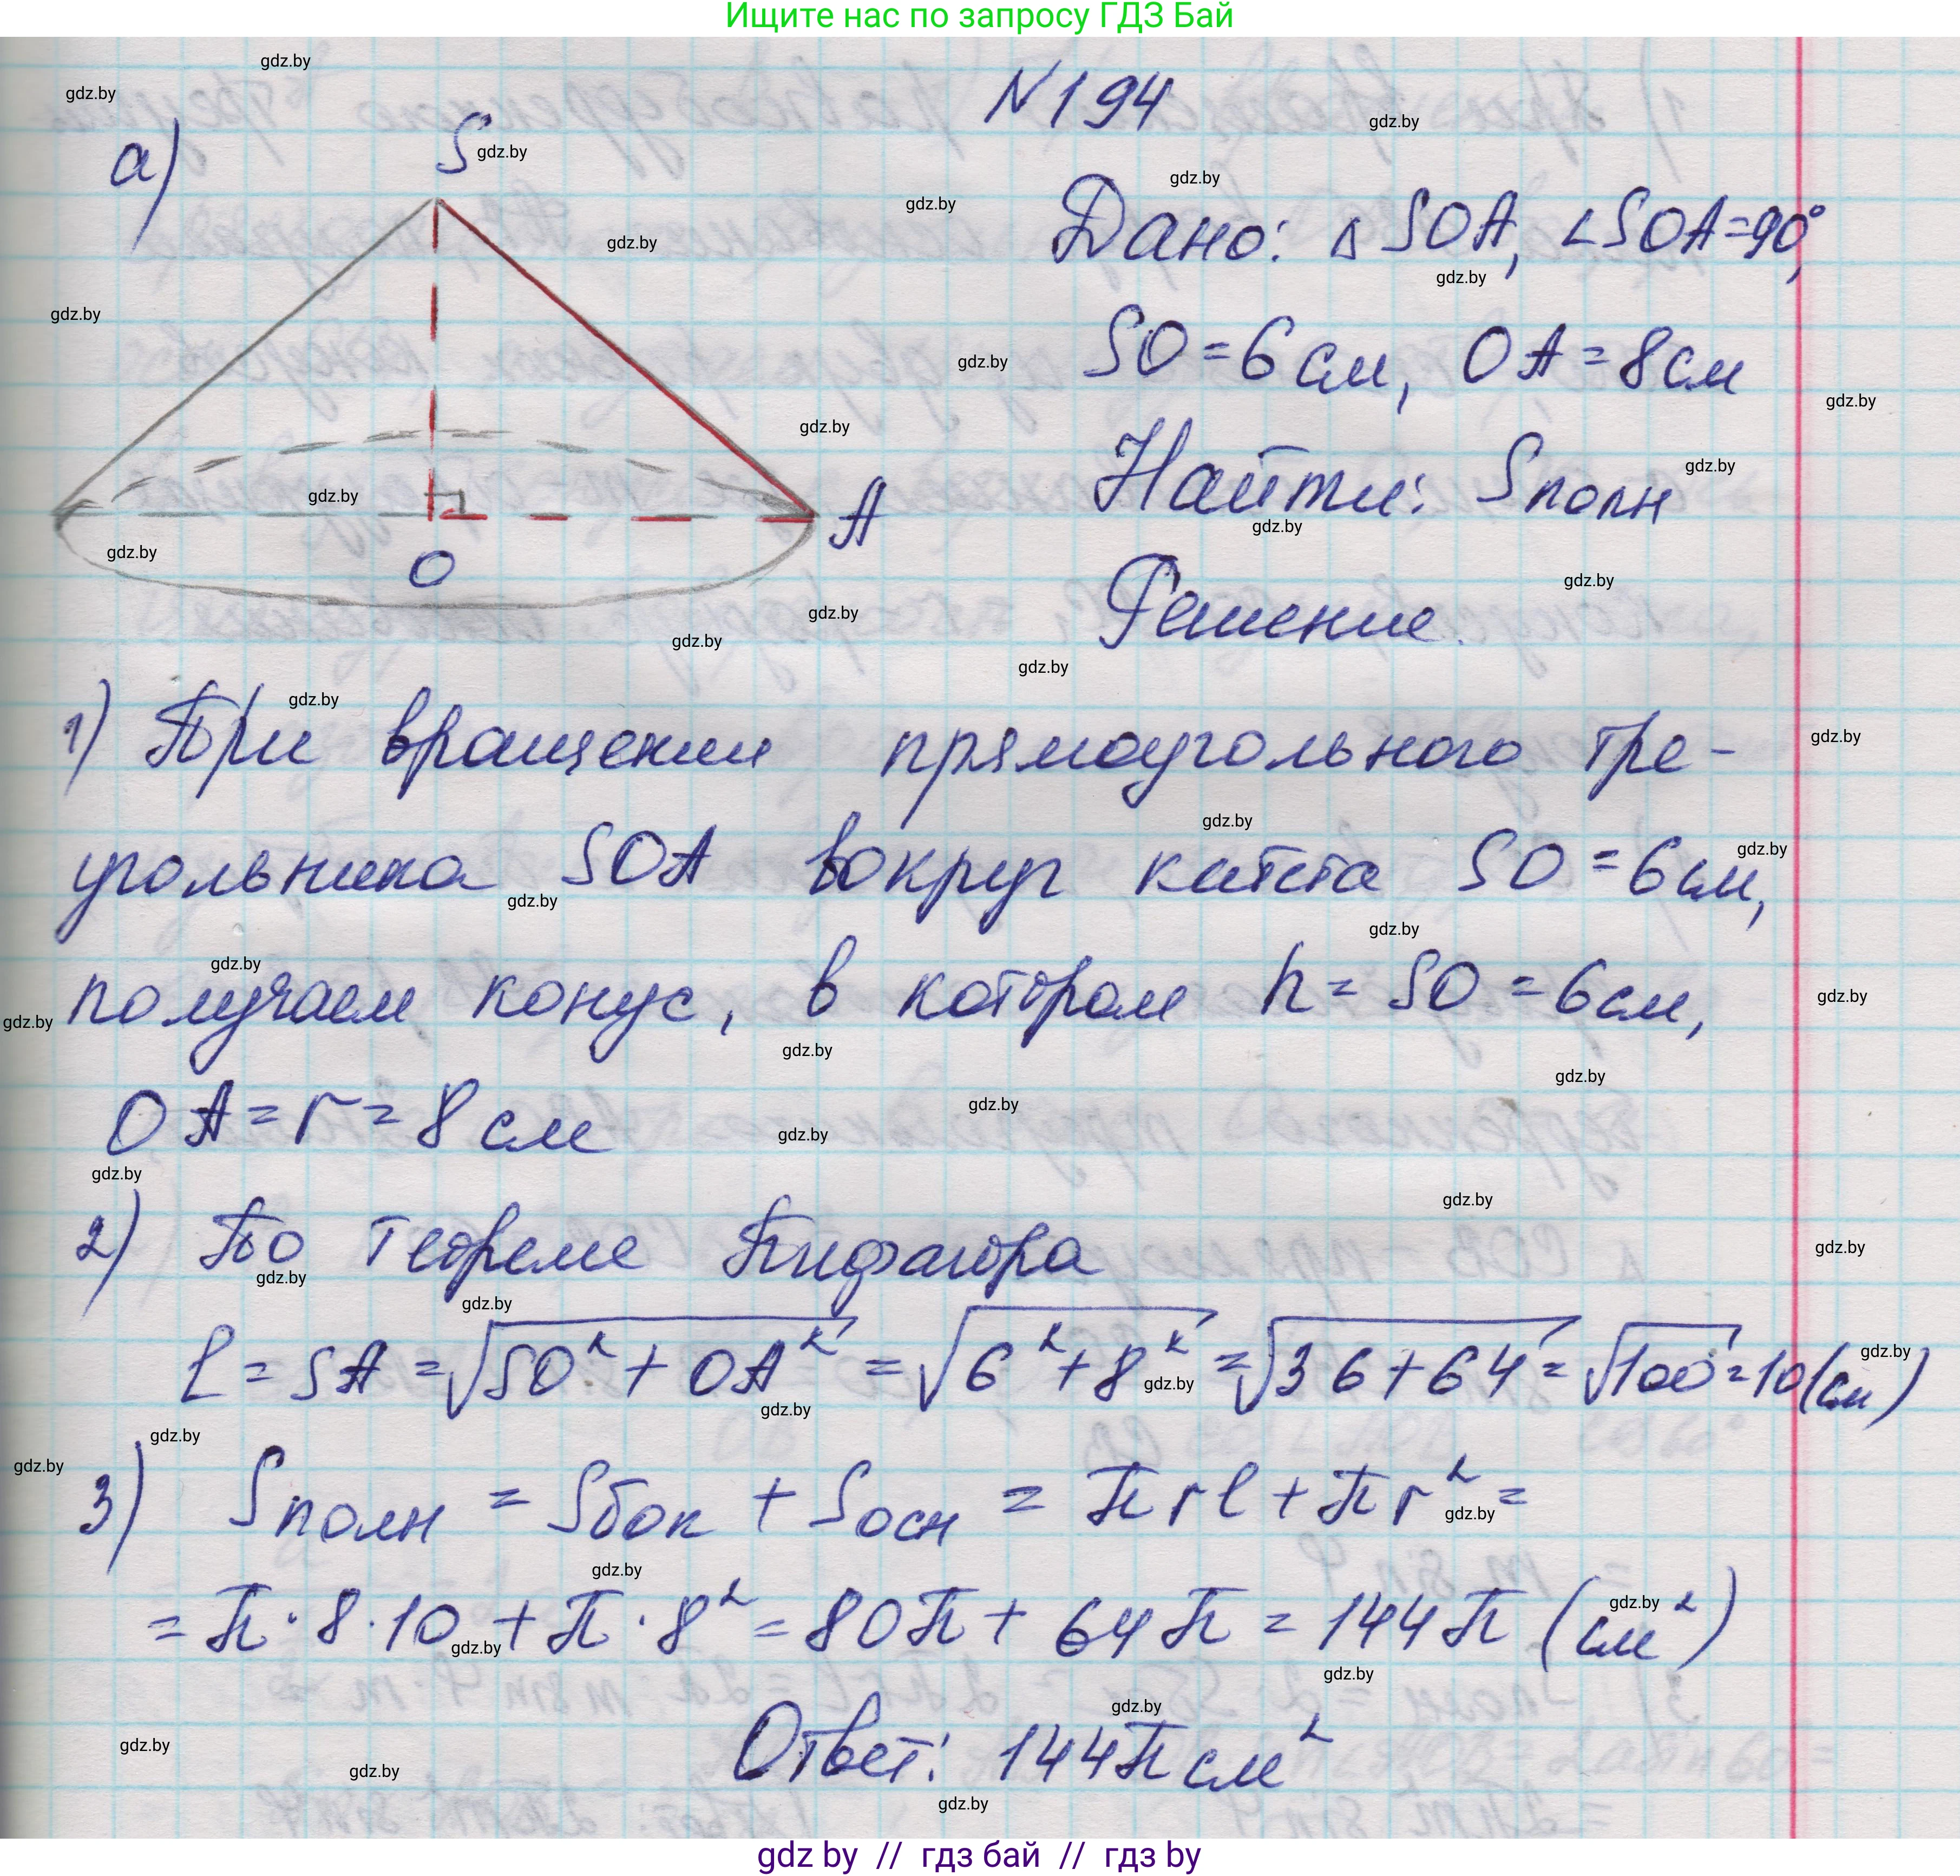 Ищите нас по запросу ГДЗ Бай
N194
а)
S
Дано: △ SOA, ∠SOA=90°,
SO=6см, OA=8см
Найти: Sполн
A
O
Решение.
1) При вращении прямоугольного тре-
угольника SOA вокруг катета SO=6см,
получаем конус, в котором h=SO=6см,
OA=r=8см
2) По теореме Пифагора
l=SA=√SO²+OA² = √6²+8² =√36+64=√100=10(см)
3) Sполн = Sбок + Sосн = πrl+πr²=
=π·8·10+π·8²=80π+64π=144π (см²)
Ответ: 144π см²
gdz by // гдз бай // гдз by